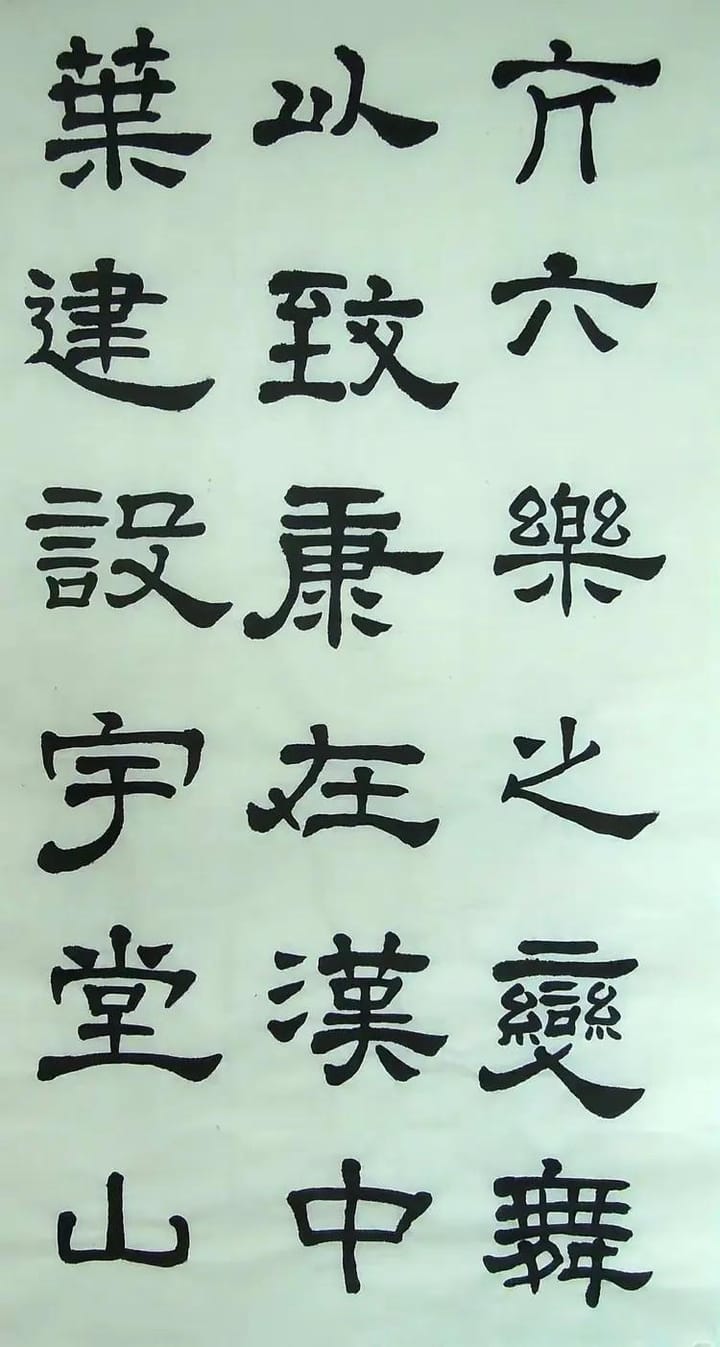 亢六樂之變舞
以致康在漢中
葉建設宇堂山